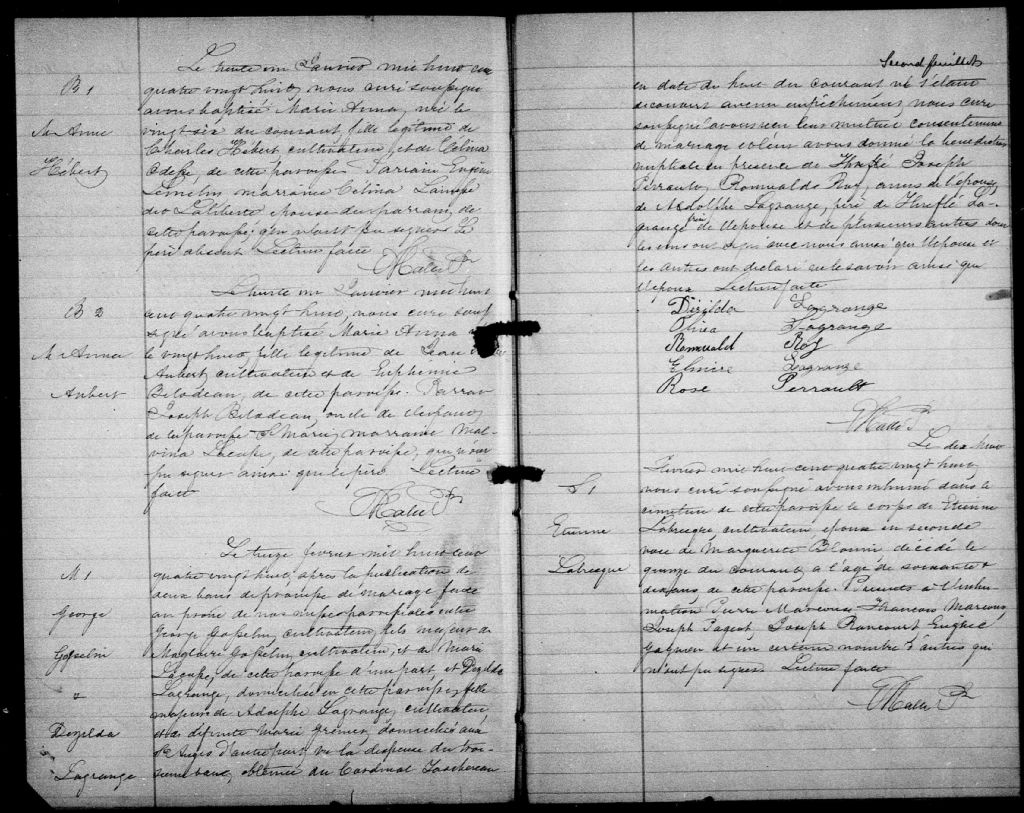 Le trente un Janvier mil huit cent
B 1
quatre vingt huit, nous curé soussigné
avons baptisé Marie Anna, née le
Mr Anne
vingt six du courant, fille legitime de
Charles Hébert cultivateur, et de Célina
Hébert
de cette paroisse Parrain Eugène
Lemelin marraine Célina
dit Laliberté épouse du parrain, de
cette paroisse, qui n'ont pu signer. Le
père absent Lecture faite
Le trente un Janvier mil huit
B 2
cent quatre vingt huit, nous curé sous
signé avons baptisé Marie Anna
Mr Anna
le vingt huit, fille legitime de Jean
Aubert, cultivateur et de Euphemie
Aubert
Bilodeau, de cette paroisse. Parrain
Joseph Bilodeau, oncle de l'enfant
de la paroisse Ste Marie, marraine Mal-
vina de cette paroisse, qui n'ont
pu signer ainsi que le père Lecture
faite
Le treize fevrier mil huit cent
M 1
quatre vingt huit, après la publication de
deux bans de promesse de mariage faite
George
au prône de nos messes paroissiales entre
George Gosselin, cultivateur, fils majeur de
Gosselin
Magloire Gosselin, cultivateur, et de Marie
de cette paroisse d'une part, et Dezilda
"
Lagrange, domiciliée en cette paroisse, fille
majeure de Adolphe Lagrange, cultivateur
Dezilda
et de defunte Marie Grenier, domiciliés aux
Sts Anges d'autre part, vu la dispense du troi-
Lagrange
sieme banc, obtenue du Cardinal Taschereau
Second feuillet
en date du huit du courant ne s'étant
découvert aucun empêchement, nous curé
soussigné avons reçu leur mutuel consentement
de mariage et leur avons donné la benediction
nuptiale en presence de Joseph
Perrault, Romuald Roy, amis de l'épouse,
de Adolphe Lagrange, père de La-
grange frère de l'épouse et de plusieurs autres dont
les uns ont signé avec nous ainsi que l'épouse et
les autres ont declaré ne le savoir ainsi que
l'époux Lecture faite
Dezilda Lagrange
Olivia Lagrange
Romuald Roy
Elmire Lagrange
Rose Perrault
Le dix huit
Fevrier mil huit cent quatre vingt huit,
S 1
nous curé soussigné avons inhumé dans le
cimetière de cette paroisse le corps de Etienne
Etienne
Labrecque cultivateur epoux en seconde
noce de Marguerite Blouin décédé le
Labrecque
quinze du courant à l'age de soixante &
dix ans de cette paroisse. Presents à l'inhu-
mation Pierre Marcoux François Marcoux
Joseph Pageot, Joseph Rancourt
Gagnon et un certain nombre d'autres qui
n'ont pu signer Lecture faite